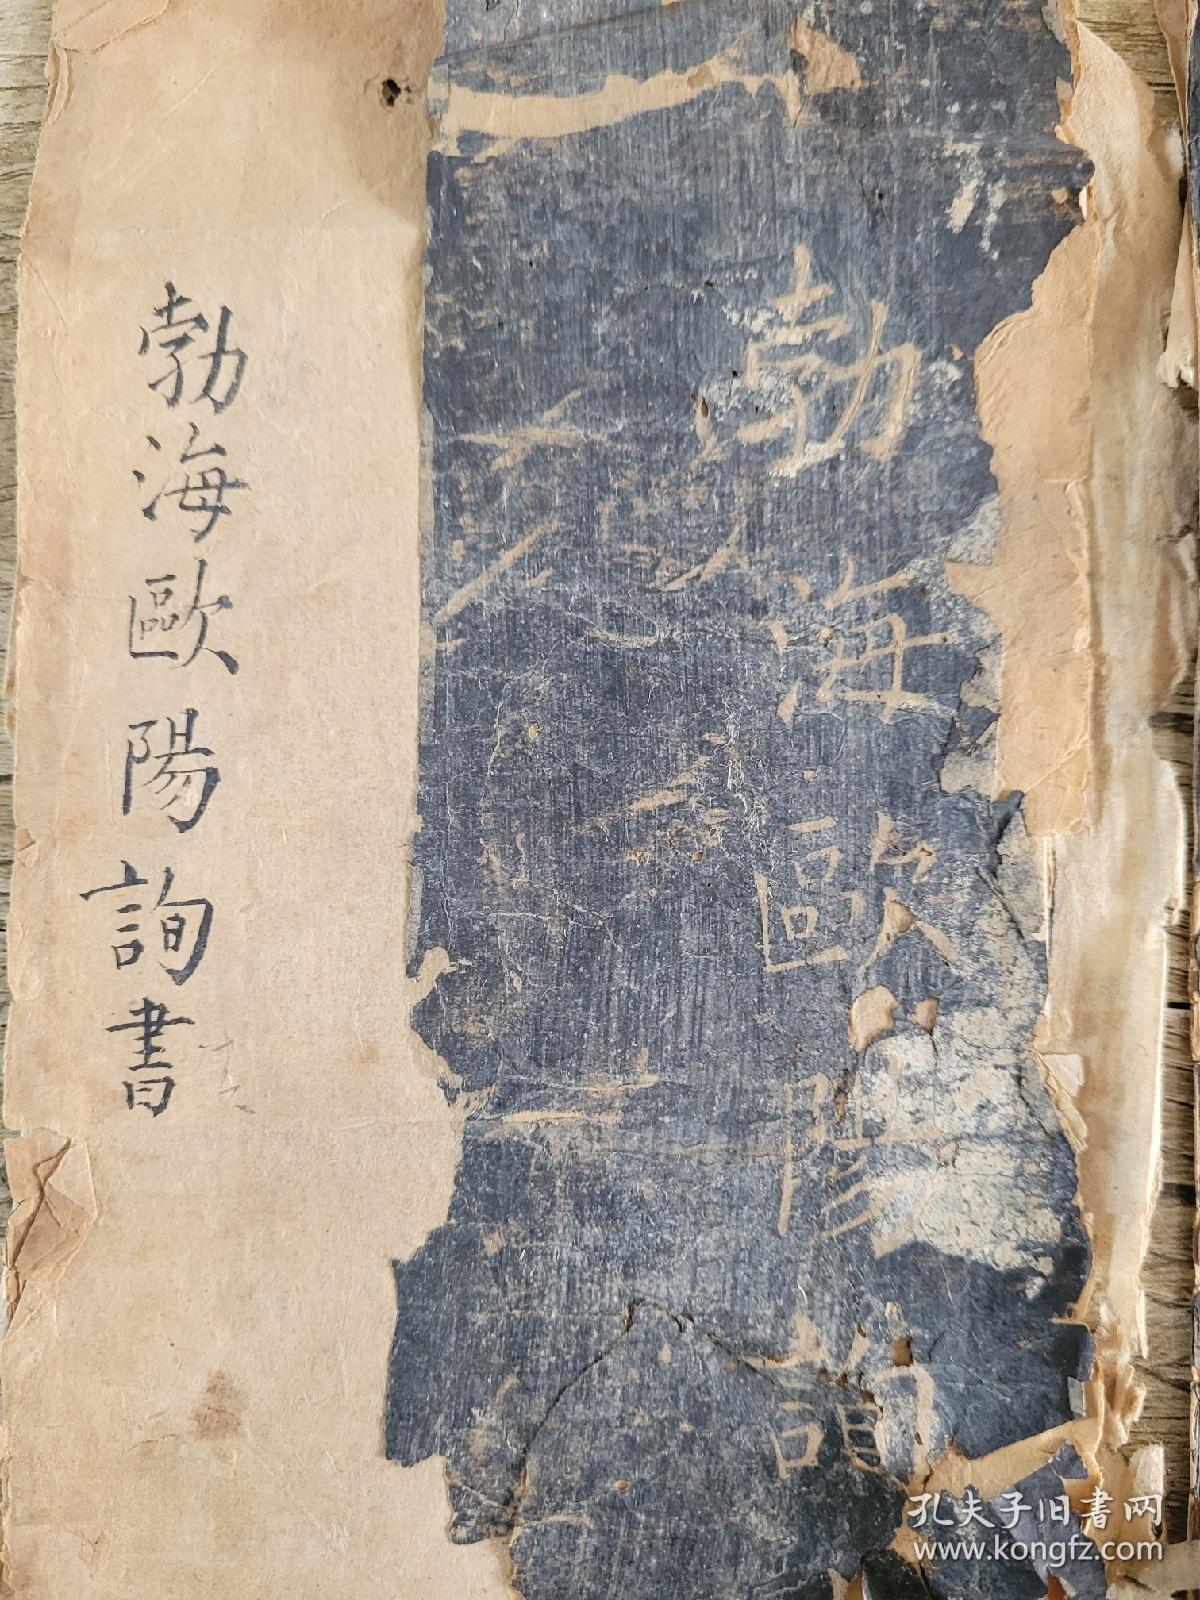 勃海歐陽詢
勃海歐陽詢書
孔夫子旧书网
www.kongfz.com